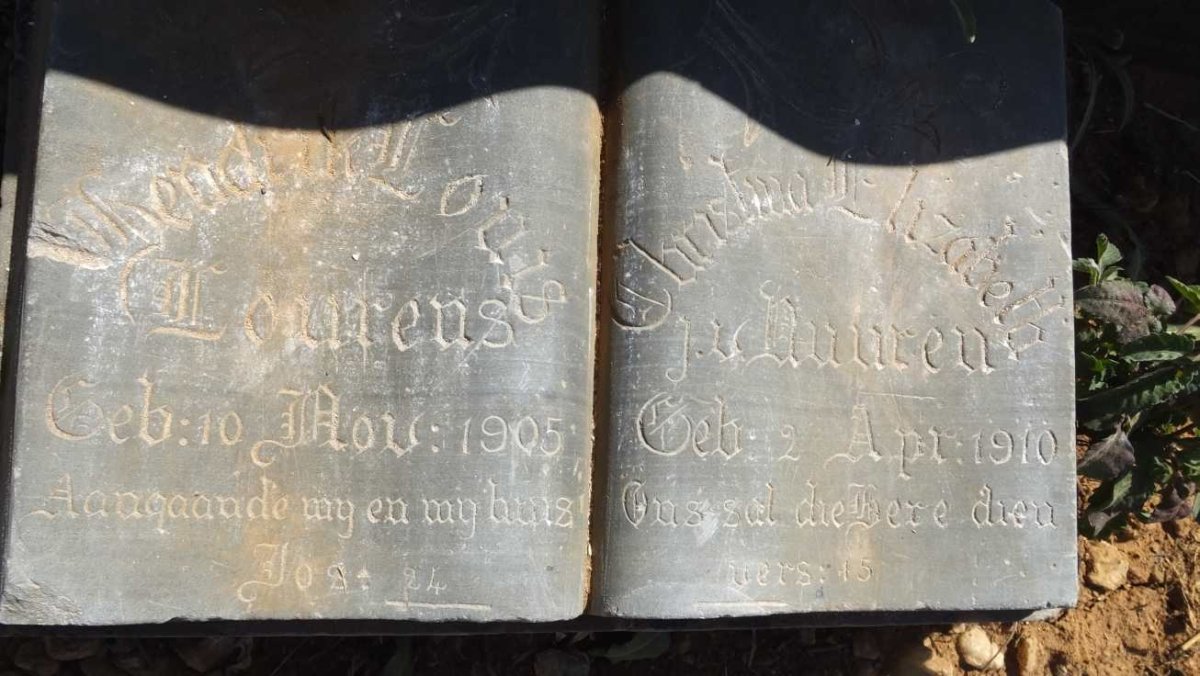 Hendrik Louis
Lourens
Geb: 10 Nov: 1905
Aangaande my en my huis
Jos: 24
Christina Elizabeth
j.v. Vuuren
Geb: 2 Apr: 1910
Ons sal die Here dien
vers: 15